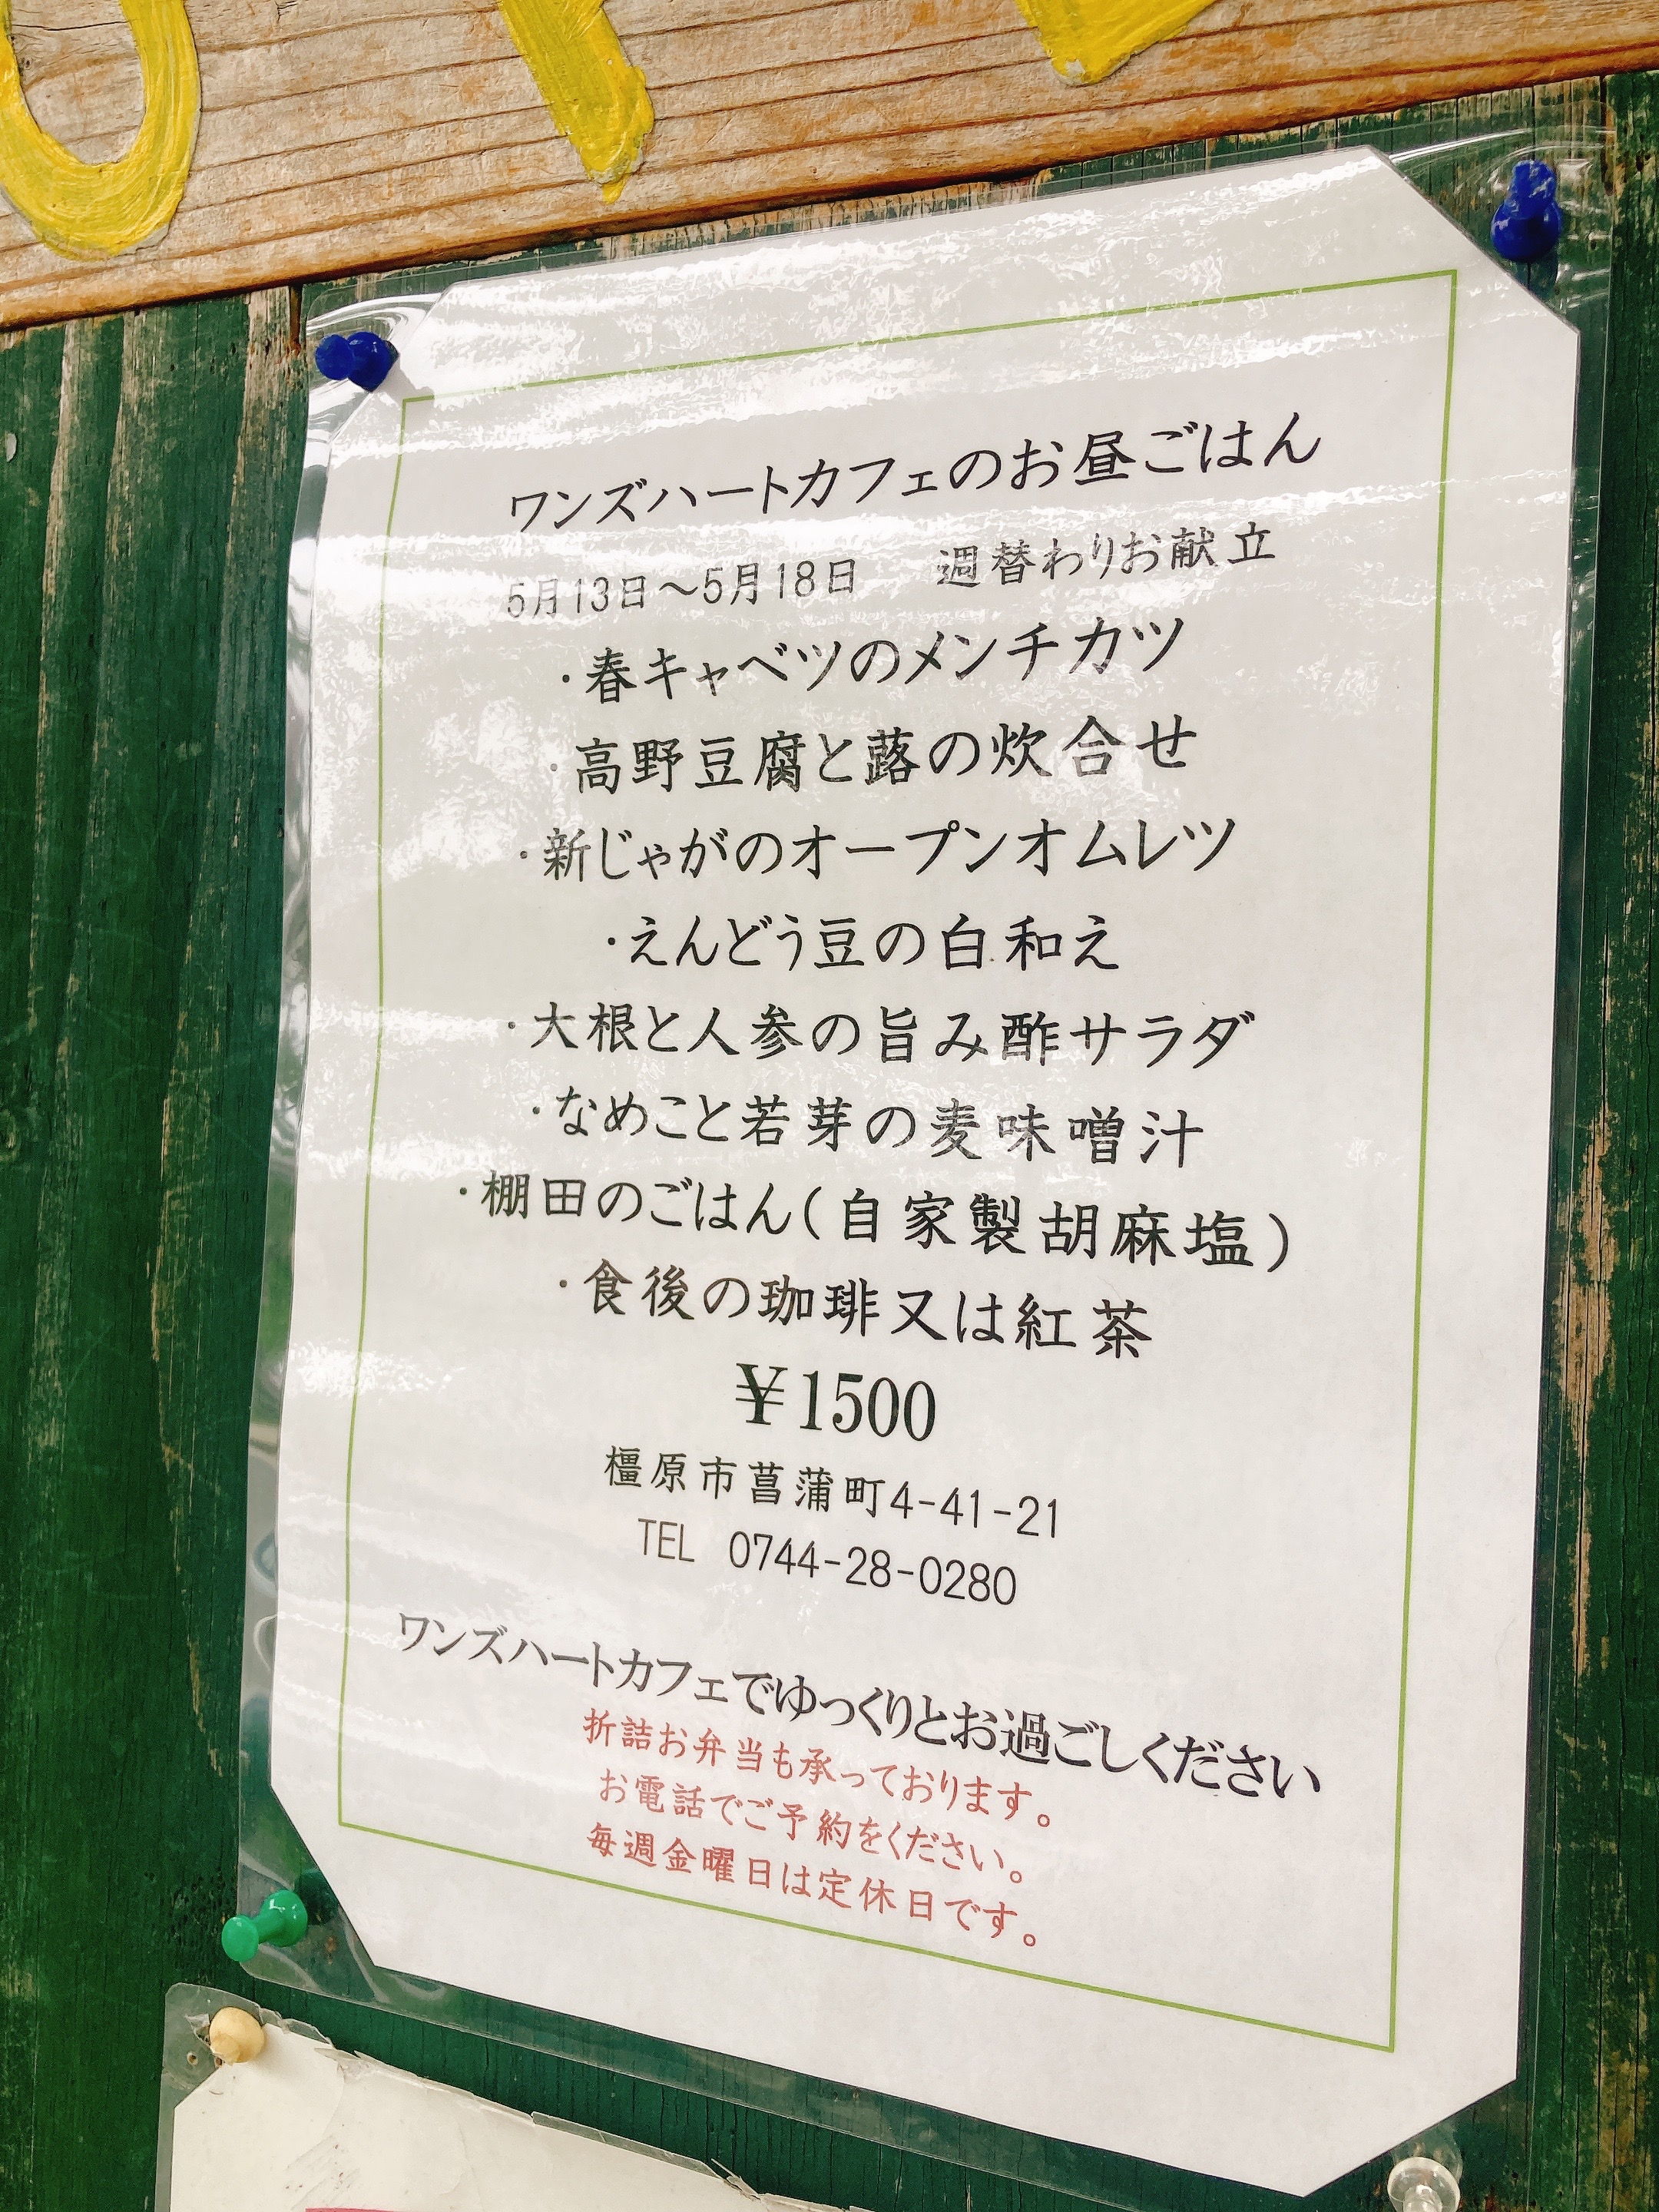 ワンズハートカフェのお昼ごはん
5月13日～5月18日　週替わりお献立
・春キャベツのメンチカツ
・高野豆腐と蕗の炊合せ
・新じゃがのオープンオムレツ
・えんどう豆の白和え
・大根と人参の旨み酢サラダ
・なめこと若芽の麦味噌汁
・棚田のごはん(自家製胡麻塩)
・食後の珈琲又は紅茶
￥1500
橿原市菖蒲町4-41-21
TEL 0744-28-0280
ワンズハートカフェでゆっくりとお過ごしください
折詰お弁当も承っております。
お電話でご予約をください。
毎週金曜日は定休日です。